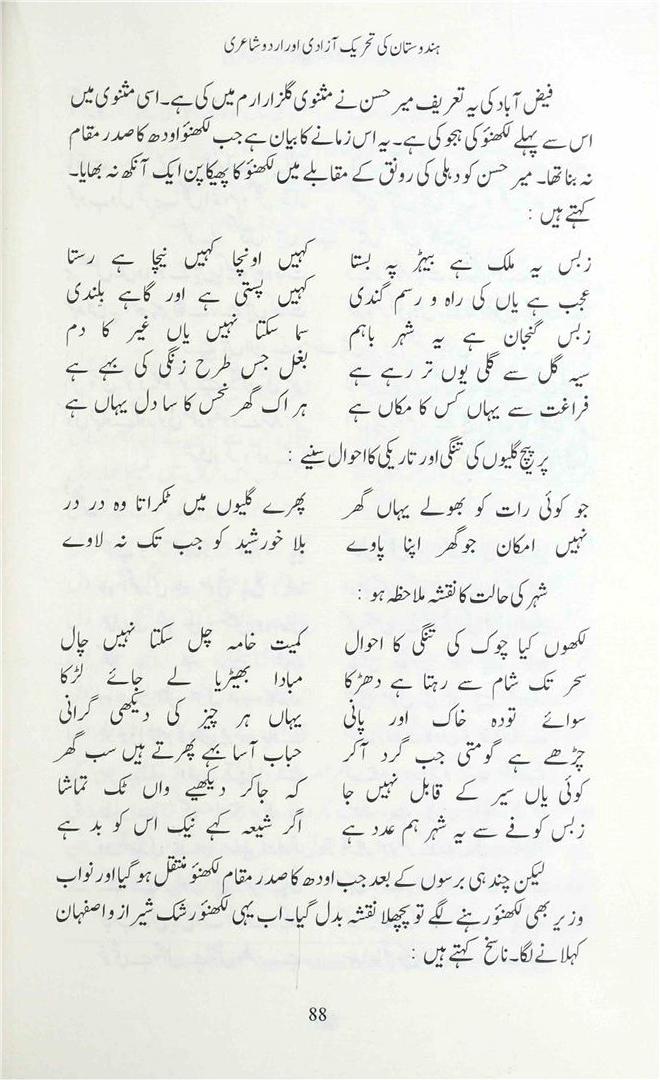 ہندوستان کی تحریک آزادی اور اردو شاعری
فیض آباد کی یہ تعریف میر حسن نے مثنوی گلزار ارم میں کی ہے۔ اسی مثنوی میں
اس سے پہلے لکھنؤ کی ہجو کی ہے۔ یہ اس زمانے کا بیان ہے جب لکھنؤ اودھ کا صدر مقام
نہ بنا تھا۔ میر حسن کو دہلی کی رونق کے مقابلے میں لکھنؤ کا پھیکا پن ایک آنکھ نہ بھایا۔
کہتے ہیں :
زبس یہ ملک ہے بیہڑ پہ بستا کہیں اونچا کہیں نیچا ہے رستا
عجب ہے یاں کی راہ و رسم گندی کہیں پستی ہے اور گاہے بلندی
زبس گنجان ہے یہ شہر باہم سما سکتا نہیں یاں غیر کا دم
سیہ گل سے گلی یوں تر رہے ہے بغل جس طرح زنگی کی بہے ہے
فراغت سے یہاں کس کا مکاں ہے ہر اک گھر نحس کا سا دل یہاں ہے
پر پیچ گلیوں کی تنگی اور تاریکی کا احوال سنیے :
جو کوئی رات کو بھولے یہاں گھر پھرے گلیوں میں ٹکراتا وہ در در
نہیں امکان جو گھر اپنا پاوے بلا خورشید کو جب تک نہ لاوے
شہر کی حالت کا نقشہ ملاحظہ ہو :
لکھوں کیا چوک کی تنگی کا احوال کمیت خامہ چل سکتا نہیں چال
سحر تک شام سے رہتا ہے دھڑکا مبادا بھیڑیا لے جائے لڑکا
سوائے تودہ خاک اور پانی یہاں ہر چیز کی دیکھی گرانی
چڑھے ہے گومتی جب گرد آکر حباب آسا بہے پھرتے ہیں سب گھر
کوئی یاں سیر کے قابل نہیں جا کہ جاکر دیکھیے واں ٹک تماشا
زبس کوفے سے یہ شہر ہم عدد ہے اگر شیعہ کہے نیک اس کو بد ہے
لیکن چند ہی برسوں کے بعد جب اودھ کا صدر مقام لکھنؤ منتقل ہو گیا اور نواب
وزیر بھی لکھنؤ رہنے لگے تو پچھلا نقشہ بدل گیا۔ اب یہی لکھنؤ رشک شیراز و اصفہان
کہلانے لگا۔ ناسخ کہتے ہیں :
88